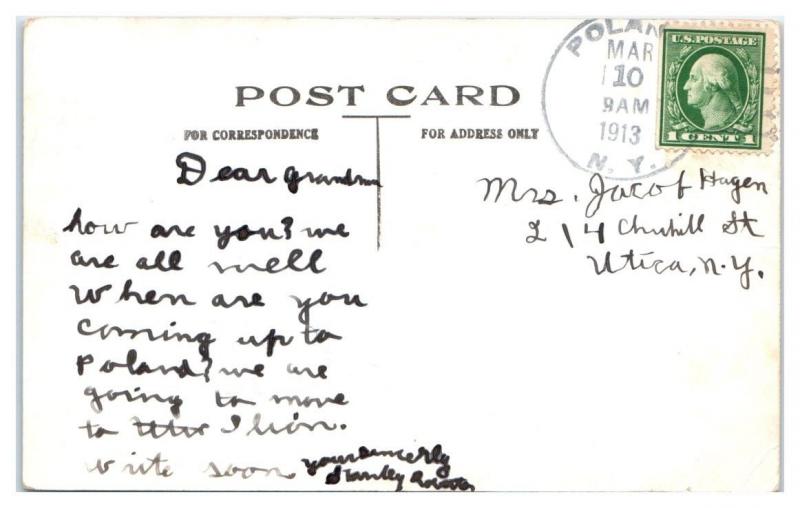 POST CARD
FOR CORRESPONDENCE
FOR ADDRESS ONLY
POLAN
MAR
10
9AM
1913
N.Y.
U.S. POSTAGE
1 CENT 1
Dear grandma
how are you? we
are all well
when are you
coming up to
Poland? we are
going to move
to Ilion.
write soon
your sincerly
Stanley
Mrs. Jacob Hagen
214 St
Utica, N.Y.